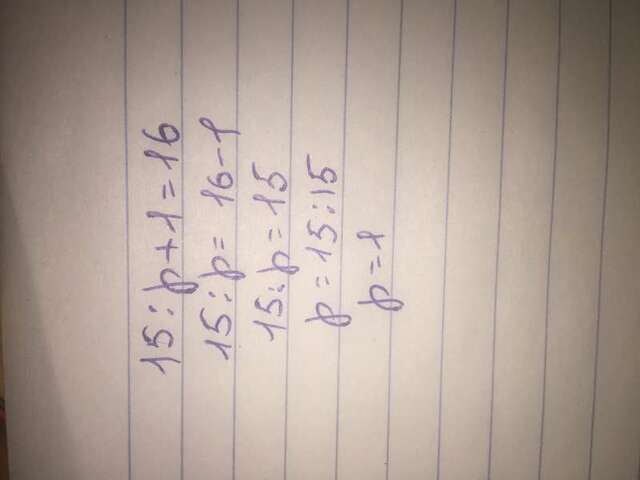 15:p+1=16
15:p= 16-1
15:p=15
p=15:15
p=1